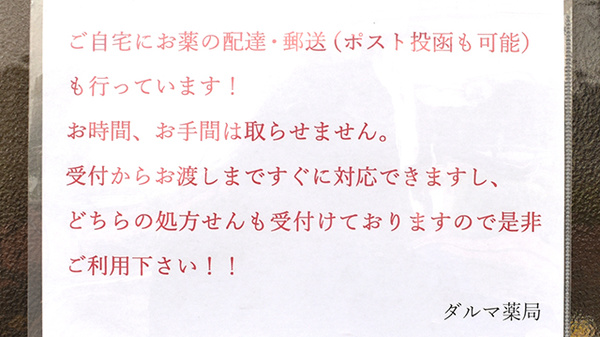 ご自宅にお薬の配達・郵送(ポスト投函も可能)
も行っています！
お時間、お手間は取らせません。
受付からお渡しまですぐに対応できますし、
どちらの処方せんも受付けておりますので是非
ご利用下さい！！
ダルマ薬局